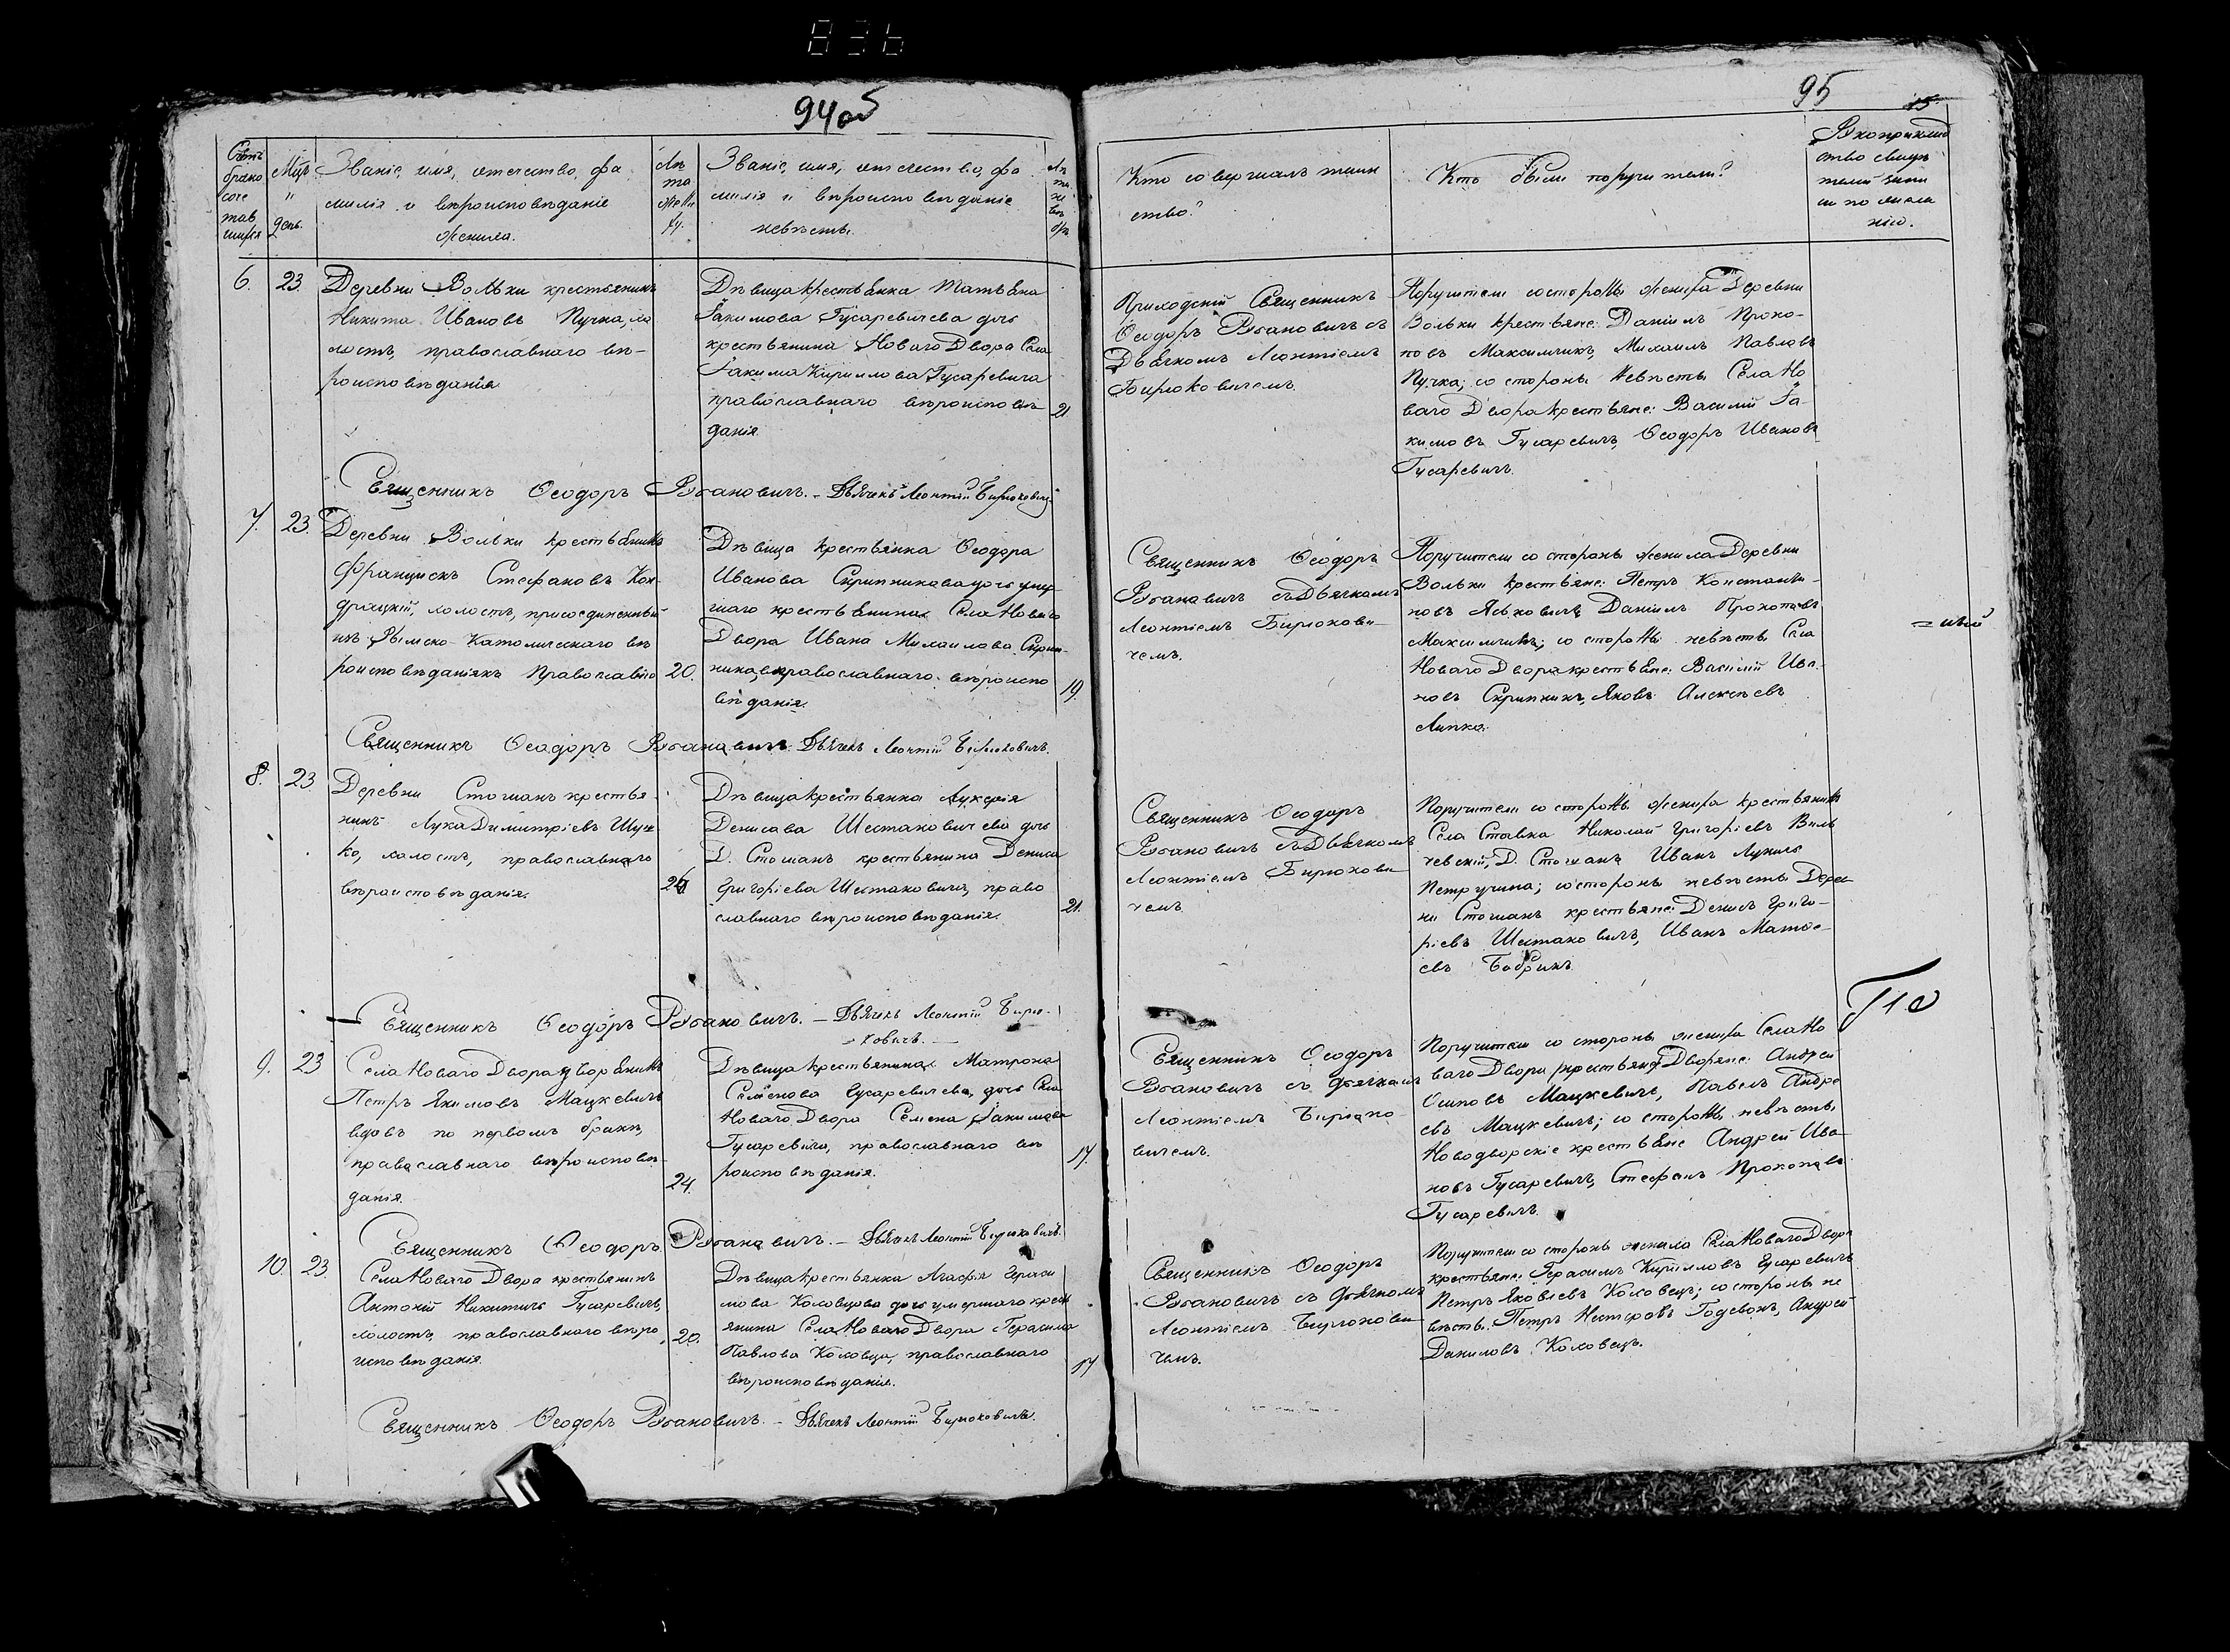 836
94 об
95
15
Счетъ
брако
соче
тав
шихся
Мцъ
"
день.
Званіе, имя, отечество, фа
милія и вѣроисповѣданіе
жениха.
Лѣ
та
жени
ху.
Званіе, имя, отечество, фа
милія и вѣроисповѣданіе
невѣсты.
Лѣ
та
не
вѣ
Кто совершалъ таин
ство?
Кто были поручители?
телей запи
си по жела
нію.
6.
23.
Деревни Вольки крестьянинъ
Никита Ивановъ Пучка, хо
лостъ, православнаго вѣ-
роисповѣданія
Дѣвица крестьянка Татьяна
Іакимова Гусаревичева дочь
крестьянина Новаго Двора Села
Іакима Кириллова Гусаревича
православнаго вѣроисповѣ
данія.
21.
Приходскій Священникъ
Ѳеодоръ Рогановичъ съ
Дьячкомъ Леонтіемъ
Бирюковичемъ.
Поручители со стороны жениха Деревни
Вольки крестьяне: Даніилъ Проко-
повъ Максимчикъ, Михаилъ Павловъ
Пучка; со стороны невѣсты Села Но
ваго Двора крестьяне: Василій Іа-
кимовъ Гусаревичъ, Ѳеодоръ Ивановъ
Гусаревичъ.
Священникъ Ѳеодоръ Рогановичъ. – Дьячекъ Леонтій Бирюковичъ
7.
23.
Деревни Вольки крестьянинъ
Францискъ Стефановъ Кон-
драцкій, холостъ, присоединенный
изъ Римско-Католическаго вѣ
роисповѣданія къ Православію
20.
Дѣвица крестьянка Ѳеодора
Иванова Скрипникова дочь умер
шаго крестьянина Села Новаго
Двора Ивана Михаилова Скрип-
ника, православнаго вѣроиспо
вѣданія.
19.
Священникъ Ѳеодоръ
Рогановичъ съ Дьячкомъ
Леонтіемъ Бирюкови-
чемъ.
Поручители со стороны жениха Деревни
Вольки крестьяне: Петръ Константи-
новъ Яськовичъ, Даніилъ Прокоповъ
Максимчикъ; со стороны невѣсты Села
Новаго Двора крестьяне: Василій Ива-
новъ Скрипникъ, Яковъ Алексѣевъ
Липка.
Священникъ Ѳеодоръ Рогановичъ. Дьячекъ Леонтій Бирюковичъ.
8.
23
Деревни Стошанъ крестья-
нинъ Лука Димитріевъ
ко, холостъ, православнаго
вѣроисповѣданія.
Дѣвица крестьянка Лукерія
Денисова Шестаковичева дочь
Д. Стошанъ крестьянина Дениса
Григоріева Шестаковича, право
славнаго вѣроисповѣданія.
21.
Священникъ Ѳеодоръ
Рогановичъ съ Дьячкомъ
Леонтіемъ Бирюкови
чемъ.
Поручители со стороны жениха крестьянинъ
Села Ставка Николай Григоріевъ Виль
чевскій, Д. Стошанъ Иванъ Лукичъ
Петручина; со стороны невѣсты Дерев
ни Стошанъ крестьяне: Денисъ Григо-
ріевъ Шестаковичъ, Иванъ Матѳе-
евъ Бобрикъ.
Священникъ Ѳеодоръ Рогановичъ. – Дьячекъ Леонтій Бирю-
-ковичъ. –
9.
23
Села Новаго Двора дворянинъ
Петръ Якимовъ Мацкевичъ
вдовъ по первомъ бракѣ,
православнаго вѣроисповѣ-
данія.
24.
Дѣвица крестьянина Матрона
Семенова Гусаревичева, дочь Села
Новаго Двора Семена Іакимова
Гусаревича, православнаго вѣ
роисповѣданія.
17.
Священникъ Ѳеодоръ
Рогановичъ съ Дьячкомъ
Леонтіемъ Бирюко-
вичемъ.
Поручители со стороны жениха Села Но
ваго Двора крестьяне Дворяне: Андрей
Осиповъ Мацкевичъ, Павелъ Андре
евъ Мацкевичъ; со стороны невѣсты
Новодворскіе крестьяне Андрей Ива-
новъ Гусаревичъ, Стефанъ Прокоповъ
Гусаревичъ.
Священникъ Ѳеодоръ Рогановичъ. – Дьячекъ Леонтій Бирюковичъ.
10.
23.
Села Новаго Двора крестьянинъ
Антоній Никитичъ Гусаревичъ,
холостъ, православнаго вѣро
исповѣданія.
20.
Дѣвица крестьянка Агафія Гераси
мова Коховцова дочь умершаго крест
янина Села Новаго Двора Герасима
Павлова Коховца, православнаго
вѣроисповѣданія.
17
Священникъ Ѳеодоръ
Рогановичъ съ Дьячкомъ
Леонтіемъ Бирюкови
чемъ.
Поручители со стороны жениха Села Новаго Двора
крестьяне: Герасимъ Кирилловъ Гусаревичъ
Петръ Яковлевъ Коховецъ; со стороны не
вѣсты: Петръ Несторовъ Годевонъ, Андрей
Даниловъ Коховецъ.
Священникъ Ѳеодоръ Рогановичъ. – Дьячекъ Леонтій Бирюковичъ.